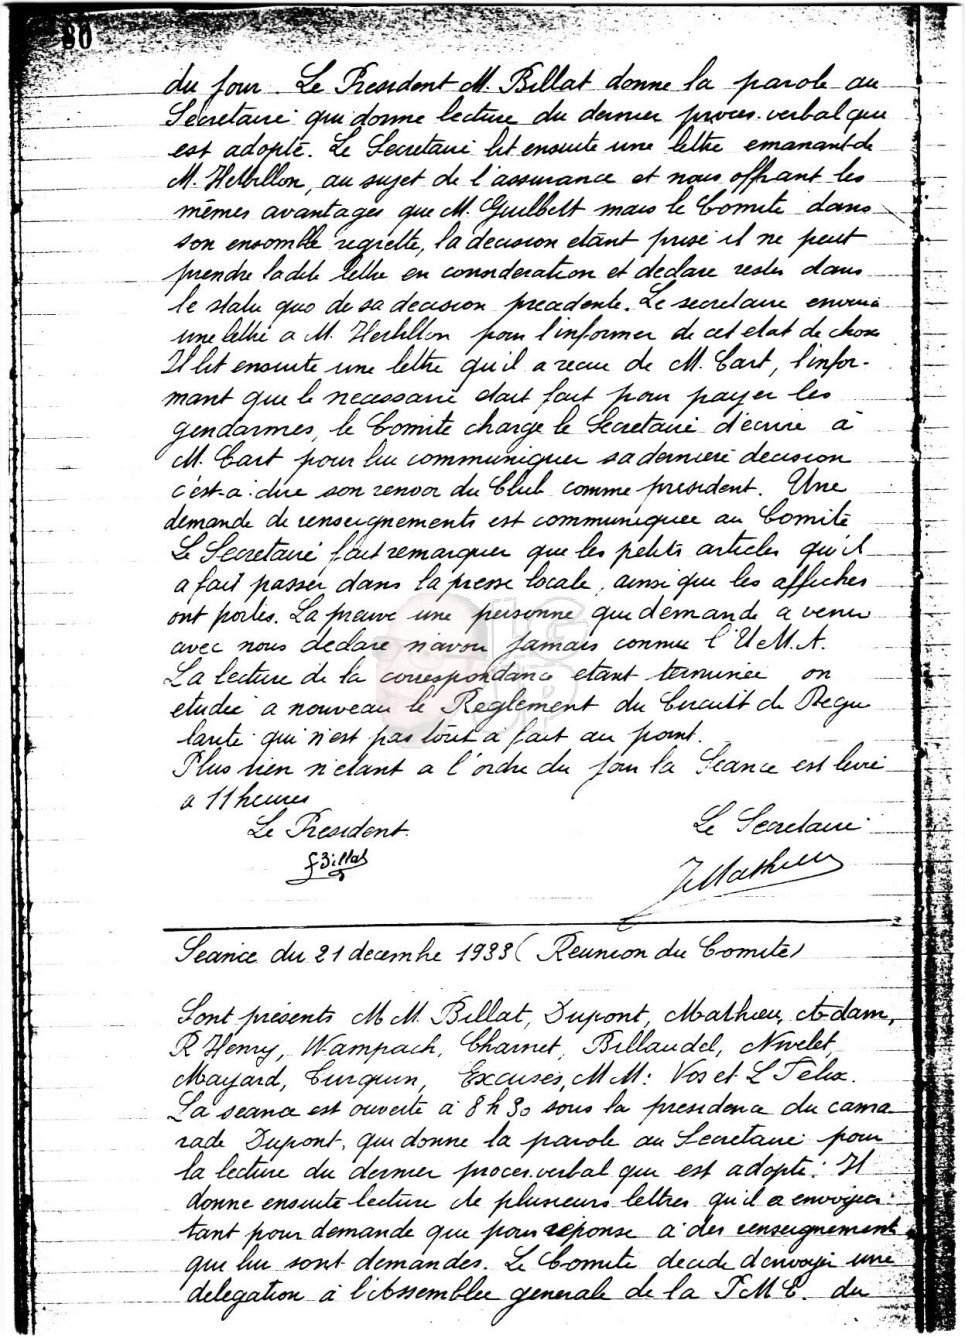 80
du jour. Le President M. Billat donne la parole au
Secretaire qui donne lecture du dernier proces. verbal qui
est adopté. Le Secretaire lit ensuite une lettre emanant de
M. Herbillon, au sujet de l'assurance et nous offrant les
mêmes avantages que M. Guilbert mais le Comite dans
son ensemble regrette, la decision etant prise il ne peut
prendre ladite lettre en consideration et declare rester dans
le statu quo de sa decision precedente. Le secretaire enverra
une lettre a M. Herbillon pour l'informer de cet etat de chose
Il lit ensuite une lettre qu'il a recue de M. Cart, l'infor-
mant que le necessaire etait fait pour payer les
gendarmes, le Comite charge le Secretaire d'écrire à
M. Cart pour lui communiquer sa derniere decision
c'est-a-dire son renvoi du Club comme president. Une
demande de renseignements est communiquee au Comite
Le Secretaire fait remarquer que les petits articles qu'il
a fait passer dans la presse locale, ainsi que les affiches
ont portés. La preuve une personne qui demande a venir
avec nous declare n'avoir jamais connu l'U.M.A.
La lecture de la correspondance etant terminée on
etudie a nouveau le Reglement du Circuit de Regu
larité qui n'est pas tout a fait au point.
Plus rien n'etant a l'ordre du jour la Seance est levée
a 11 heures
Le President Le Secretaire
Billat JMathieu
Seance du 21 decembre 1933 (Reunion du Comite)
Sont présents M M. Billat, Dupont, Mathieu, Adam,
R Henry, Wampach, Charnet, Billaudel, Nivelet,
Mayard, Curquin, Excusés, M M: Vos et L Felix.
La seance est ouverte à 8 h 30 sous la presidence du cama
rade Dupont, qui donne la parole au Secretaire pour
la lecture du dernier proces. verbal qui est adopté. Il
donne ensuite lecture de plusieurs lettres qu'il a envoyées
tant pour demande que pour réponse à des renseignements
qui lui sont demandes. Le Comite decide d'envoyer une
delegation à l'Assemblée generale de la F M E. du